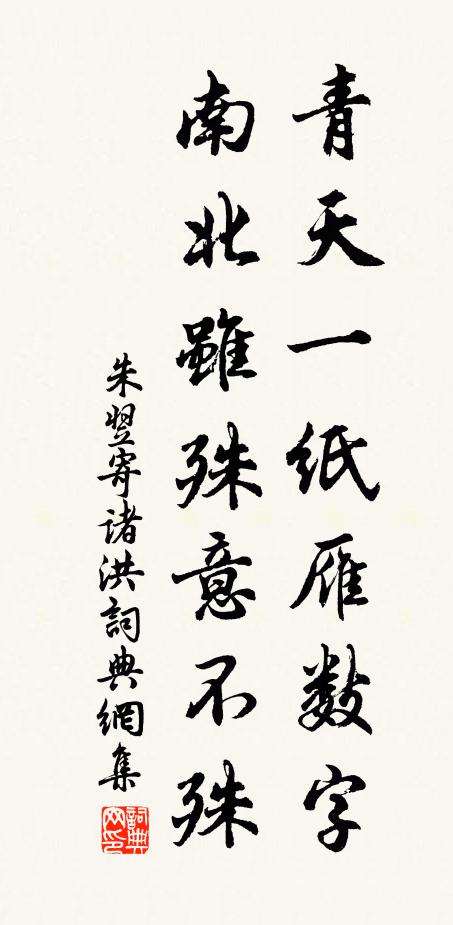 青天一紙雁数字
南北雖殊意不殊
朱翌寄諸洪詞典網集
詞典网印